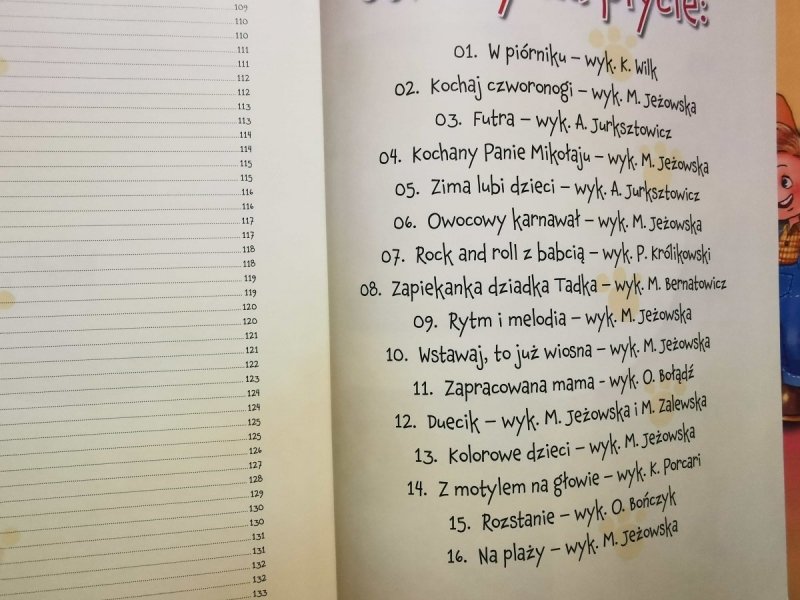 109
110
110
111
111
112
112
113
113
114
114
115
115
116
116
117
117
118
118
119
119
120
120
121
121
122
123
124
124
125
125
126
127
128
129
130
130
131
131
132
132
133
płycie:
01. W piórniku – wyk. K. Wilk
02. Kochaj czworonogi – wyk. M. Jeżowska
03. Futra – wyk. A. Jurksztowicz
04. Kochany Panie Mikołaju – wyk. M. Jeżowska
05. Zima lubi dzieci – wyk. A. Jurksztowicz
06. Owocowy karnawał – wyk. M. Jeżowska
07. Rock and roll z babcią – wyk. P. Królikowski
08. Zapiekanka dziadka Tadka – wyk. M. Bernatowicz
09. Rytm i melodia – wyk. M. Jeżowska
10. Wstawaj, to już wiosna – wyk. M. Jeżowska
11. Zapracowana mama - wyk. O. Bołądź
12. Duecik – wyk. M. Jeżowska i M. Zalewska
13. Kolorowe dzieci – wyk. M. Jeżowska
14. Z motylem na głowie – wyk. K. Porcari
15. Rozstanie – wyk. O. Bończyk
16. Na plaży – wyk. M. Jeżowska